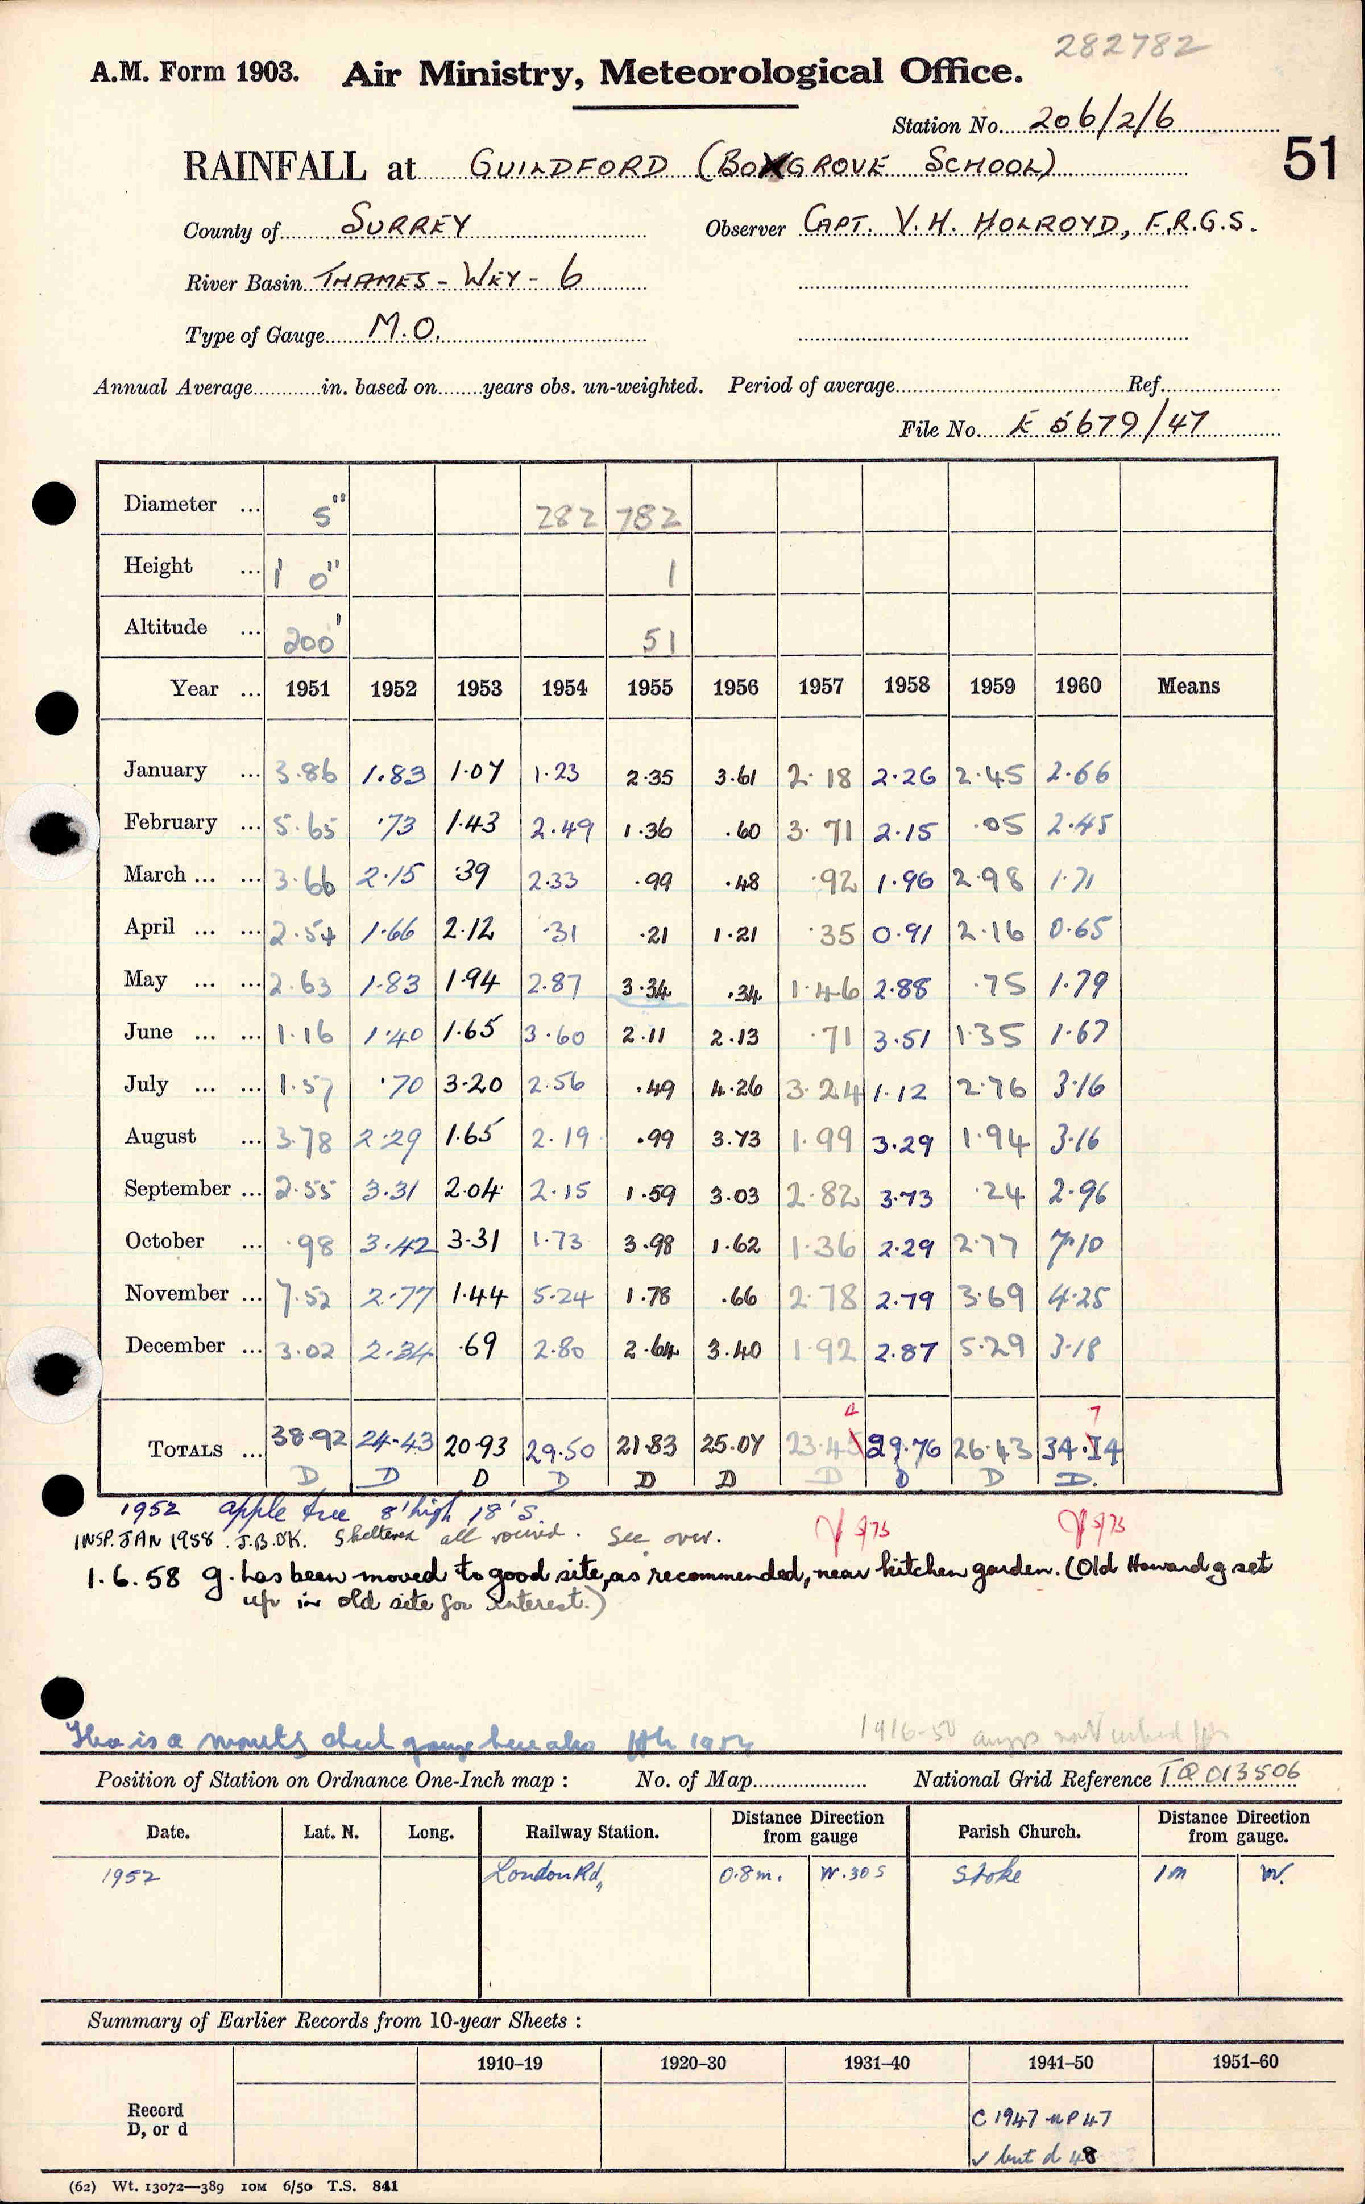 282782
A.M. Form 1903. Air Ministry, Meteorological Office.
Station No. 206/2/6
51
RAINFALL at GUILDFORD (BOXGROVE SCHOOL)
County of SURREY Observer CAPT. V. H. HOLROYD, F.R.G.S.
River Basin THAMES - WEY - 6
Type of Gauge M.O.
Annual Average in. based on years obs. un-weighted. Period of average Ref.
File No. E 5679/47
Diameter ... 5" 282 782
Height ... 1 0" 1
Altitude ... 200' 51
Year ... 1951 1952 1953 1954 1955 1956 1957 1958 1959 1960 Means
January ... 3.86 1.83 1.07 1.23 2.35 3.61 2.18 2.26 2.45 2.66
February ... 5.65 .73 1.43 2.49 1.36 .60 3.71 2.15 .05 2.45
March ... ... 3.66 2.15 .39 2.33 .99 .48 .92 1.96 2.98 1.71
April ... ... 2.54 1.66 2.12 .31 .21 1.21 .35 0.91 2.16 0.65
May ... ... 2.63 1.83 1.94 2.87 3.34 .34 1.46 2.88 .75 1.79
June ... ... 1.16 1.40 1.65 3.60 2.11 2.13 .71 3.51 1.35 1.67
July ... ... 1.57 .70 3.20 2.56 .49 4.26 3.24 1.12 2.76 3.16
August ... 3.78 2.29 1.65 2.19 .99 3.73 1.99 3.29 1.94 3.16
September ... 2.55 3.31 2.04 2.15 1.59 3.03 2.82 3.73 .24 2.96
October ... .98 3.42 3.31 1.73 3.98 1.62 1.36 2.29 2.77 7.10
November ... 7.52 2.77 1.44 5.24 1.78 .66 2.78 2.79 3.69 4.25
December ... 3.02 2.34 .69 2.80 2.64 3.40 1.92 2.87 5.29 3.18
4 7
TOTALS ... 38.92 24.43 20.93 29.50 21.83 25.07 23.45 29.76 26.43 34.14
D D D D D D D D D D.
1952 apple tree 8' high 18' S.
INSP. JAN 1958. J.B. OK. Sheltered all round. See over. 5/73 5/73
1.6.58 g. has been moved to good site, as recommended, near kitchen garden. (Old Howard g set
up in old site for interest.)
This is a monthly check gauge here also
1916-50
Position of Station on Ordnance One-Inch map : No. of Map National Grid Reference TQ 013506
Date. Lat. N. Long. Railway Station. Distance Direction from gauge Parish Church. Distance Direction from gauge.
1952 London Rd, 0.8 m. W.30 S Stoke 1m W.
Summary of Earlier Records from 10-year Sheets :
1910–19 1920–30 1931–40 1941–50 1951–60
Record
D, or d
C 1947 47
✓ but d 48
(62) Wt. 13072—389 10M 6/50 T.S. 841